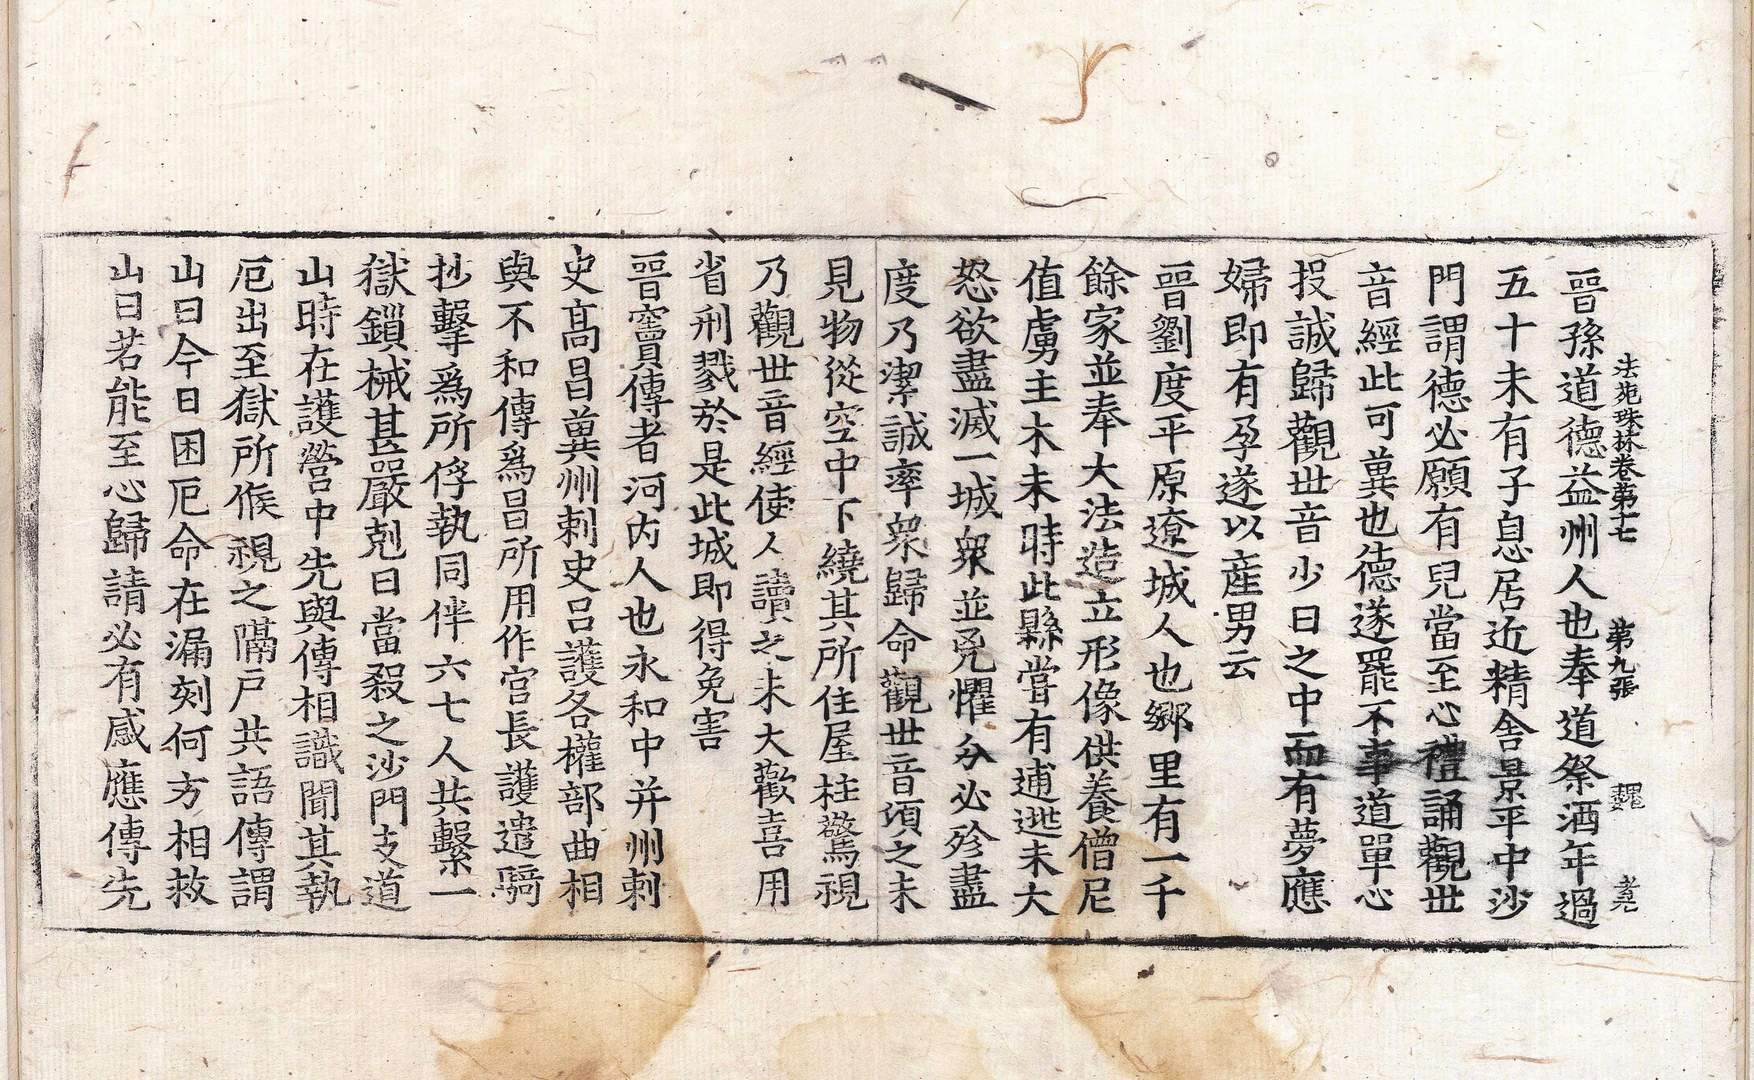 法苑珠林卷第十七　第九張　魏　堯
晉孫道德益州人也奉道祭酒年過
五十未有子息居近精舍景平中沙
門謂德必願有兒當至心禮誦觀世
音經此可冀也德遂罷不事道單心
投誠歸觀世音少日之中而有夢應
婦即有孕遂以産男云
晉劉度平原遼城人也鄉里有一千
餘家並奉大法造立形像供養僧尼
值虜主木末時此縣嘗有逋逃末大
怒欲盡滅一城衆並兇懼分必殄盡
度乃潔誠率衆歸命觀世音頃之末
見物從空中下繞其所住屋柱驚視
乃觀世音經使人讀之末大歡喜用
省刑戮於是此城即得免害
晉竇傳者河內人也永和中并州刺
史髙昌冀州刺史呂護各權部曲相
與不和傳爲昌所用作官長護遣騎
抄擊爲所俘執同伴六七人共繫一
獄鎖械甚嚴剋日當殺之沙門支道
山時在護營中先與傳相識聞其執
厄出至獄所候視之隔戶共語傳謂
山曰今日困厄命在漏刻何方相救
山曰若能至心歸請必有感應傳先